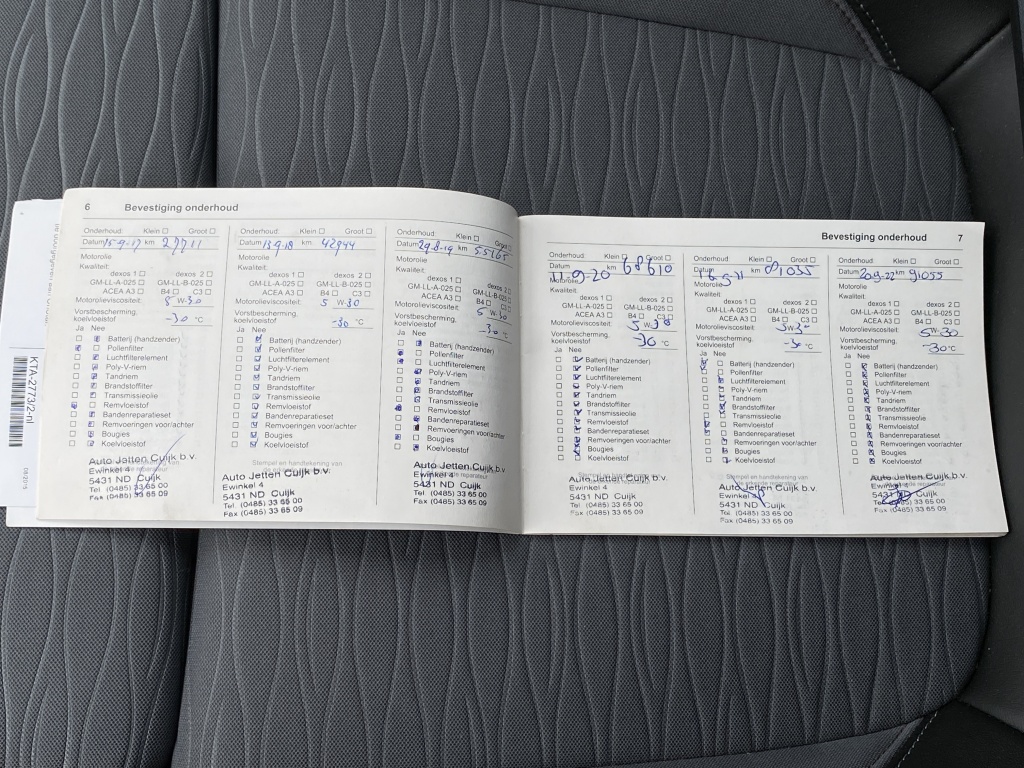 6 Bevestiging onderhoud
Onderhoud: Klein Groot
Datum 15-9-17 km 27711
Motorolie
Kwaliteit:
dexos 1 dexos 2
GM-LL-A-025 GM-LL-B-025
ACEA A3 B4 C3
Motorolieviscositeit: 5 W-30
Vorstbescherming, koelvloeistof -30 °C
Ja Nee
Batterij (handzender)
Pollenfilter
Luchtfilterelement
Poly-V-riem
Tandriem
Brandstoffilter
Transmissieolie
Remvloeistof
Bandenreparatieset
Remvoeringen voor/achter
Bougies
Koelvloeistof
Auto Jetten Cuijk b.v.
Ewinkel 4
5431 ND Cuijk
Tel (0485) 33 65 00
Fax (0485) 33 65 09
Onderhoud: Klein Groot
Datum 13-9-18 km: 42944
Motorolie
Kwaliteit:
dexos 1 dexos 2
GM-LL-A-025 GM-LL-B-025
ACEA A3 B4 C3
Motorolieviscositeit: 5 W-30
Vorstbescherming, koelvloeistof -30 °C
Ja Nee
Batterij (handzender)
Pollenfilter
Luchtfilterelement
Poly-V-riem
Tandriem
Brandstoffilter
Transmissieolie
Remvloeistof
Bandenreparatieset
Remvoeringen voor/achter
Bougies
Koelvloeistof
Stempel en handtekening van
Auto Jetten Cuijk b.v.
Ewinkel 4
5431 ND Cuijk
Tel (0485) 33 65 00
Fax (0485) 33 65 09
Onderhoud: Klein Groot
Datum 29-8-19 km 55165
Motorolie
Kwaliteit:
dexos 1 dexos 2
GM-LL-A-025 GM-LL-B-025
ACEA A3 B4 C3
Motorolieviscositeit: 5 W-30
Vorstbescherming, koelvloeistof -30 °C
Ja Nee
Batterij (handzender)
Pollenfilter
Luchtfilterelement
Poly-V-riem
Tandriem
Brandstoffilter
Transmissieolie
Remvloeistof
Bandenreparatieset
Remvoeringen voor/achter
Bougies
Koelvloeistof
Auto Jetten Cuijk b.v.
Ewinkel 4
5431 ND Cuijk
Tel (0485) 33 65 00
Fax (0485) 33 65 09
Bevestiging onderhoud 7
Onderhoud: Klein Groot
Datum 11-9-20 km 68610
Motorolie
Kwaliteit:
dexos 1 dexos 2
GM-LL-A-025 GM-LL-B-025
ACEA A3 B4 C3
Motorolieviscositeit: 5 W-30
Vorstbescherming, koelvloeistof -30 °C
Ja Nee
Batterij (handzender)
Pollenfilter
Luchtfilterelement
Poly-V-riem
Tandriem
Brandstoffilter
Transmissieolie
Remvloeistof
Bandenreparatieset
Remvoeringen voor/achter
Bougies
Koelvloeistof
Stempel en handtekening van
Auto Jetten Cuijk b.v.
Ewinkel 4
5431 ND Cuijk
Tel (0485) 33 65 00
Fax (0485) 33 65 09
Onderhoud: Klein Groot
Datum km 81055
Motorolie
Kwaliteit:
dexos 1 dexos 2
GM-LL-A-025 GM-LL-B-025
ACEA A3 B4 C3
Motorolieviscositeit: 5W-30
Vorstbescherming, koelvloeistof -30 °C
Ja Nee
Batterij (handzender)
Pollenfilter
Luchtfilterelement
Poly-V-riem
Tandriem
Brandstoffilter
Transmissieolie
Remvloeistof
Bandenreparatieset
Remvoeringen voor/achter
Bougies
Koelvloeistof
Stempel en handtekening van
Auto Jetten Cuijk b.v.
Ewinkel 4
5431 ND Cuijk
Tel (0485) 33 65 00
Fax (0485) 33 65 09
Onderhoud: Klein Groot
Datum 20-9-22 km 91055
Motorolie
Kwaliteit:
dexos 1 dexos 2
GM-LL-A-025 GM-LL-B-025
ACEA A3 B4 C3
Motorolieviscositeit: 5W-30
Vorstbescherming, koelvloeistof -30 °C
Ja Nee
Batterij (handzender)
Pollenfilter
Luchtfilterelement
Poly-V-riem
Tandriem
Brandstoffilter
Transmissieolie
Remvloeistof
Bandenreparatieset
Remvoeringen voor/achter
Bougies
Koelvloeistof
Stempel en handtekening van
Auto Jetten Cuijk b.v.
Ewinkel 4
5431 ND Cuijk
Tel (0485) 33 65 00
Fax (0485) 33 65 09
KTA-2773/2-nl
08/2015